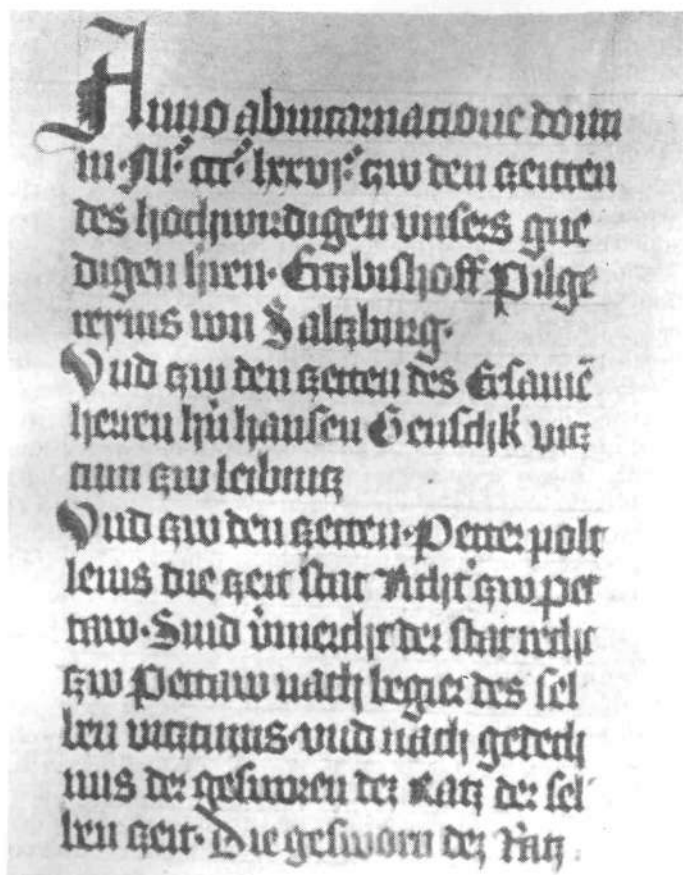 Anno ab incarnacione domi
ni · M° · ccc° · lxxvj° · czw den czeitten
des hochwirdigen vnsers gne
digen hren · Erczbischoff Pilge
reyms von Salczburg ·
Vnd czw den czeiten des Ersamē
herren hansen vicz
tum czw leibnicz
Vnd czw den czeiten · Petter
die czeit stat Richt' czw pet
taw · Sind der stat recht
czw Pettaw nach begier des sel
ben vicztumis · vnd nach gedech
nus der gesworen dez Racz der sel
ben czeit · Die gesworn dez Racz